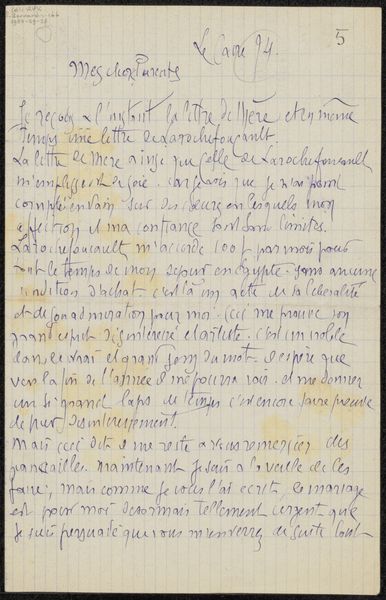 5
Le Caire 94.
Mes chers Parents
Je reçois à l'instant la lettre de Mère et en même
temps une lettre de Larochefoucault.
La lettre de Mère ainsi que celle de Larochefoucault
m'emplissent de joie. car je vois que je n'ai point
compté en vain sur des cœurs en lesquels mon
affection et ma confiance sont sans limites.
Larochefoucault m'accorde 100 f par mois pour
tout le temps de mon séjour en Egypte. sans aucune
condition d'achat. c'est là un acte de sa libéralité
et de son admiration pour moi. ceci me prouve son
grand esprit désintéressé et artiste. c'est un noble
dans le vrai et grand sens du mot. il espère que
vers la fin de l'année il me pourra voir. et me donner
un si grand laps de temps c'est encore faire preuve
de pur désintéressement.
Mais ceci dit il me reste à vous remercier des
fiançailles. maintenant je suis à la veille de les
faire, mais comme je vous l'ai écrit, le mariage
est pour moi désormais tellement urgent que
je suis persuadé que vous m'enverrez de suite tout